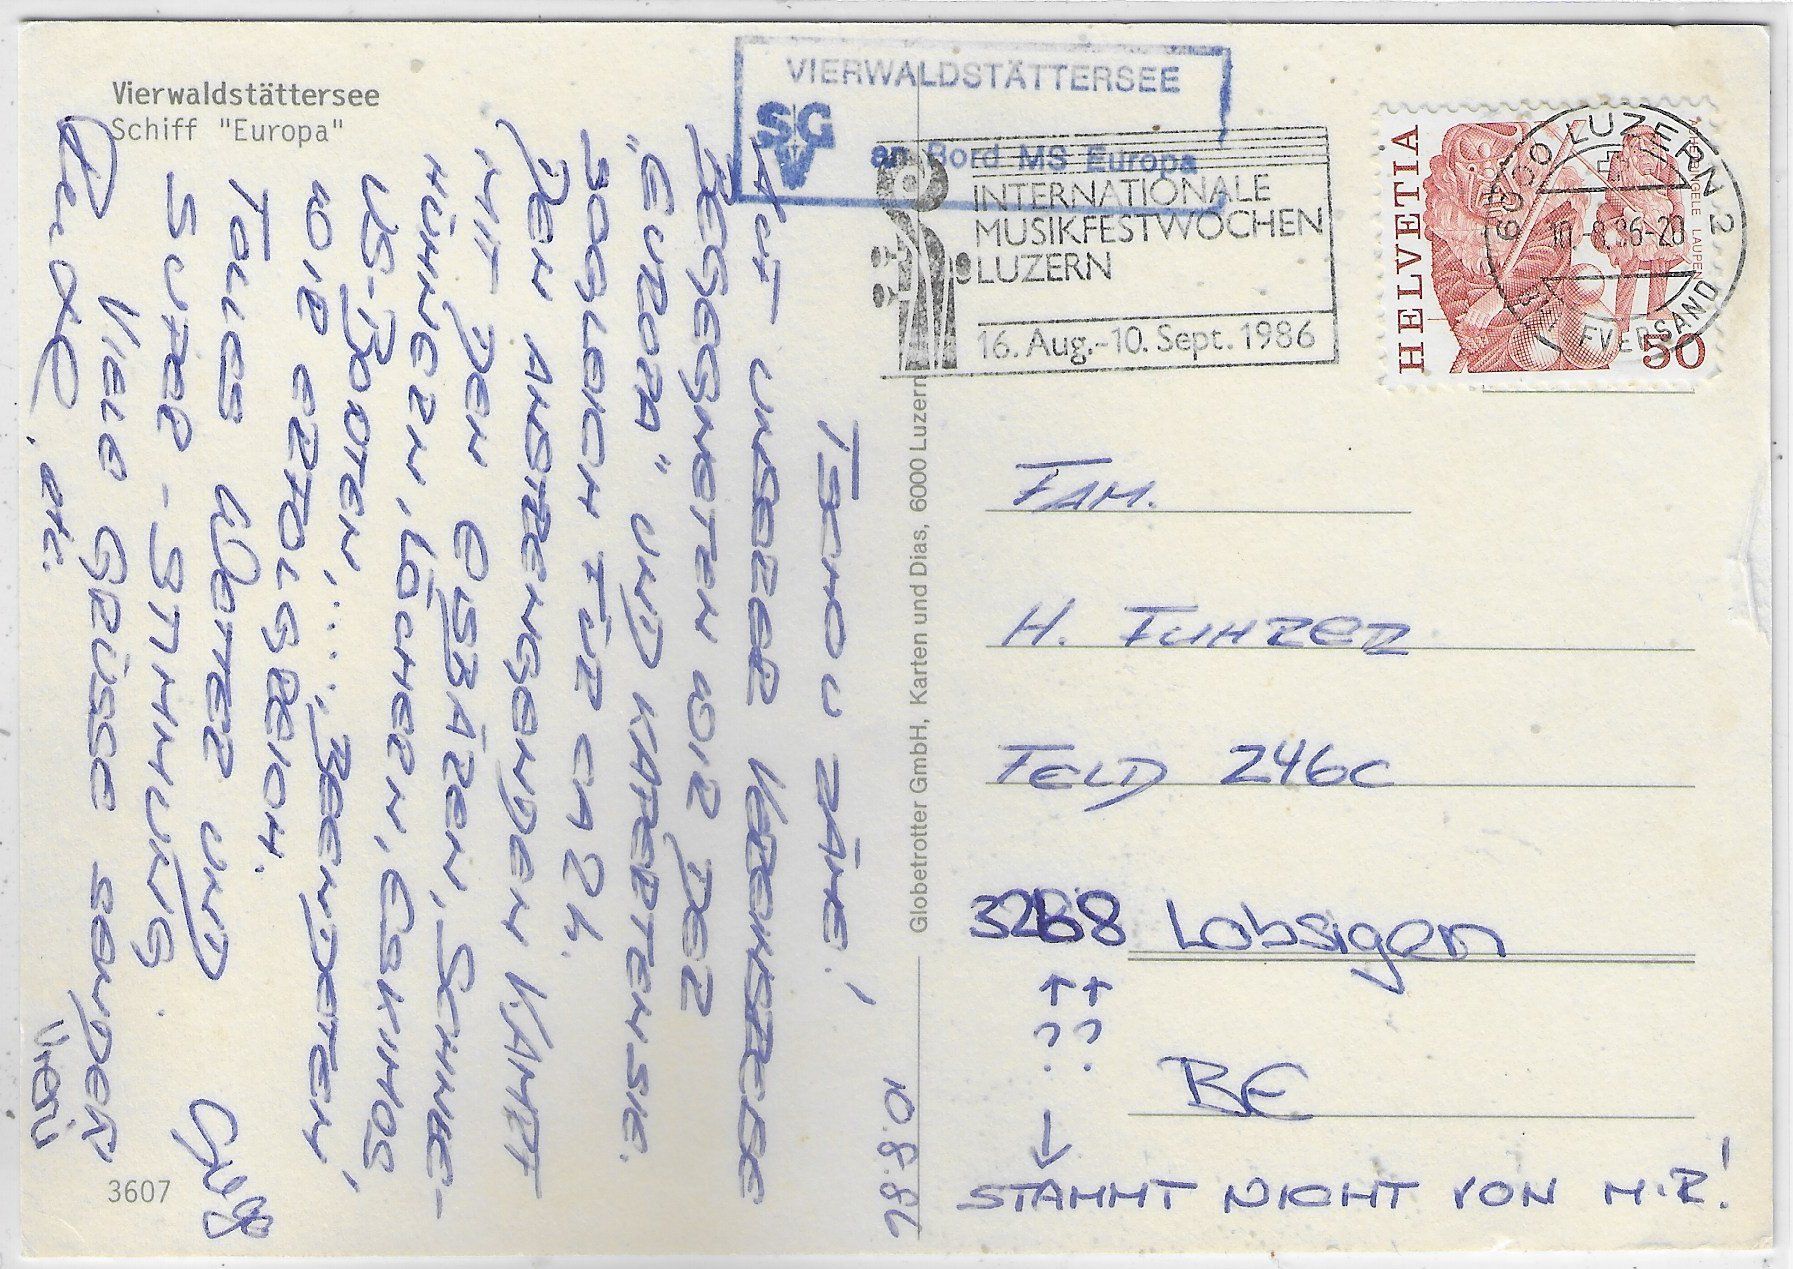 Vierwaldstättersee
Schiff "Europa"
VIERWALDSTÄTTERSEE
SGV
an Bord MS Europa
INTERNATIONALE
MUSIKFESTWOCHEN
LUZERN
16. Aug.-10. Sept. 1986
HELVETIA
50
6000 LUZERN 2
10.-8.86-20
10.8.86
TSCHOU ZÄME!
AUF UNSERER
BEGEGNETEN WIR DER
"EUROPA" UND KAPERTEN SIE
SOGLEICH FÜR CA 2h.
DEN ANSTRENGENDEN KAMPF
MIT DEN EISBÄREN, SCHNEE-
HÜHNERN, LÖCHERN, ESKIMOS
US-BOOTEN, ...., BEENDETEN
WIR ERFOLGREICH.
TOLLES WETTER UND
SUPER-STIMMUNG.
VIELE GRÜSSE SENDEN
Globetrotter GmbH, Karten und Dias, 6000 Luzern
FAM.
H. FUHRER
FELD 246C
3268 Lobsigen
??
BE
STAMMT NICHT VON M.R.!
3607